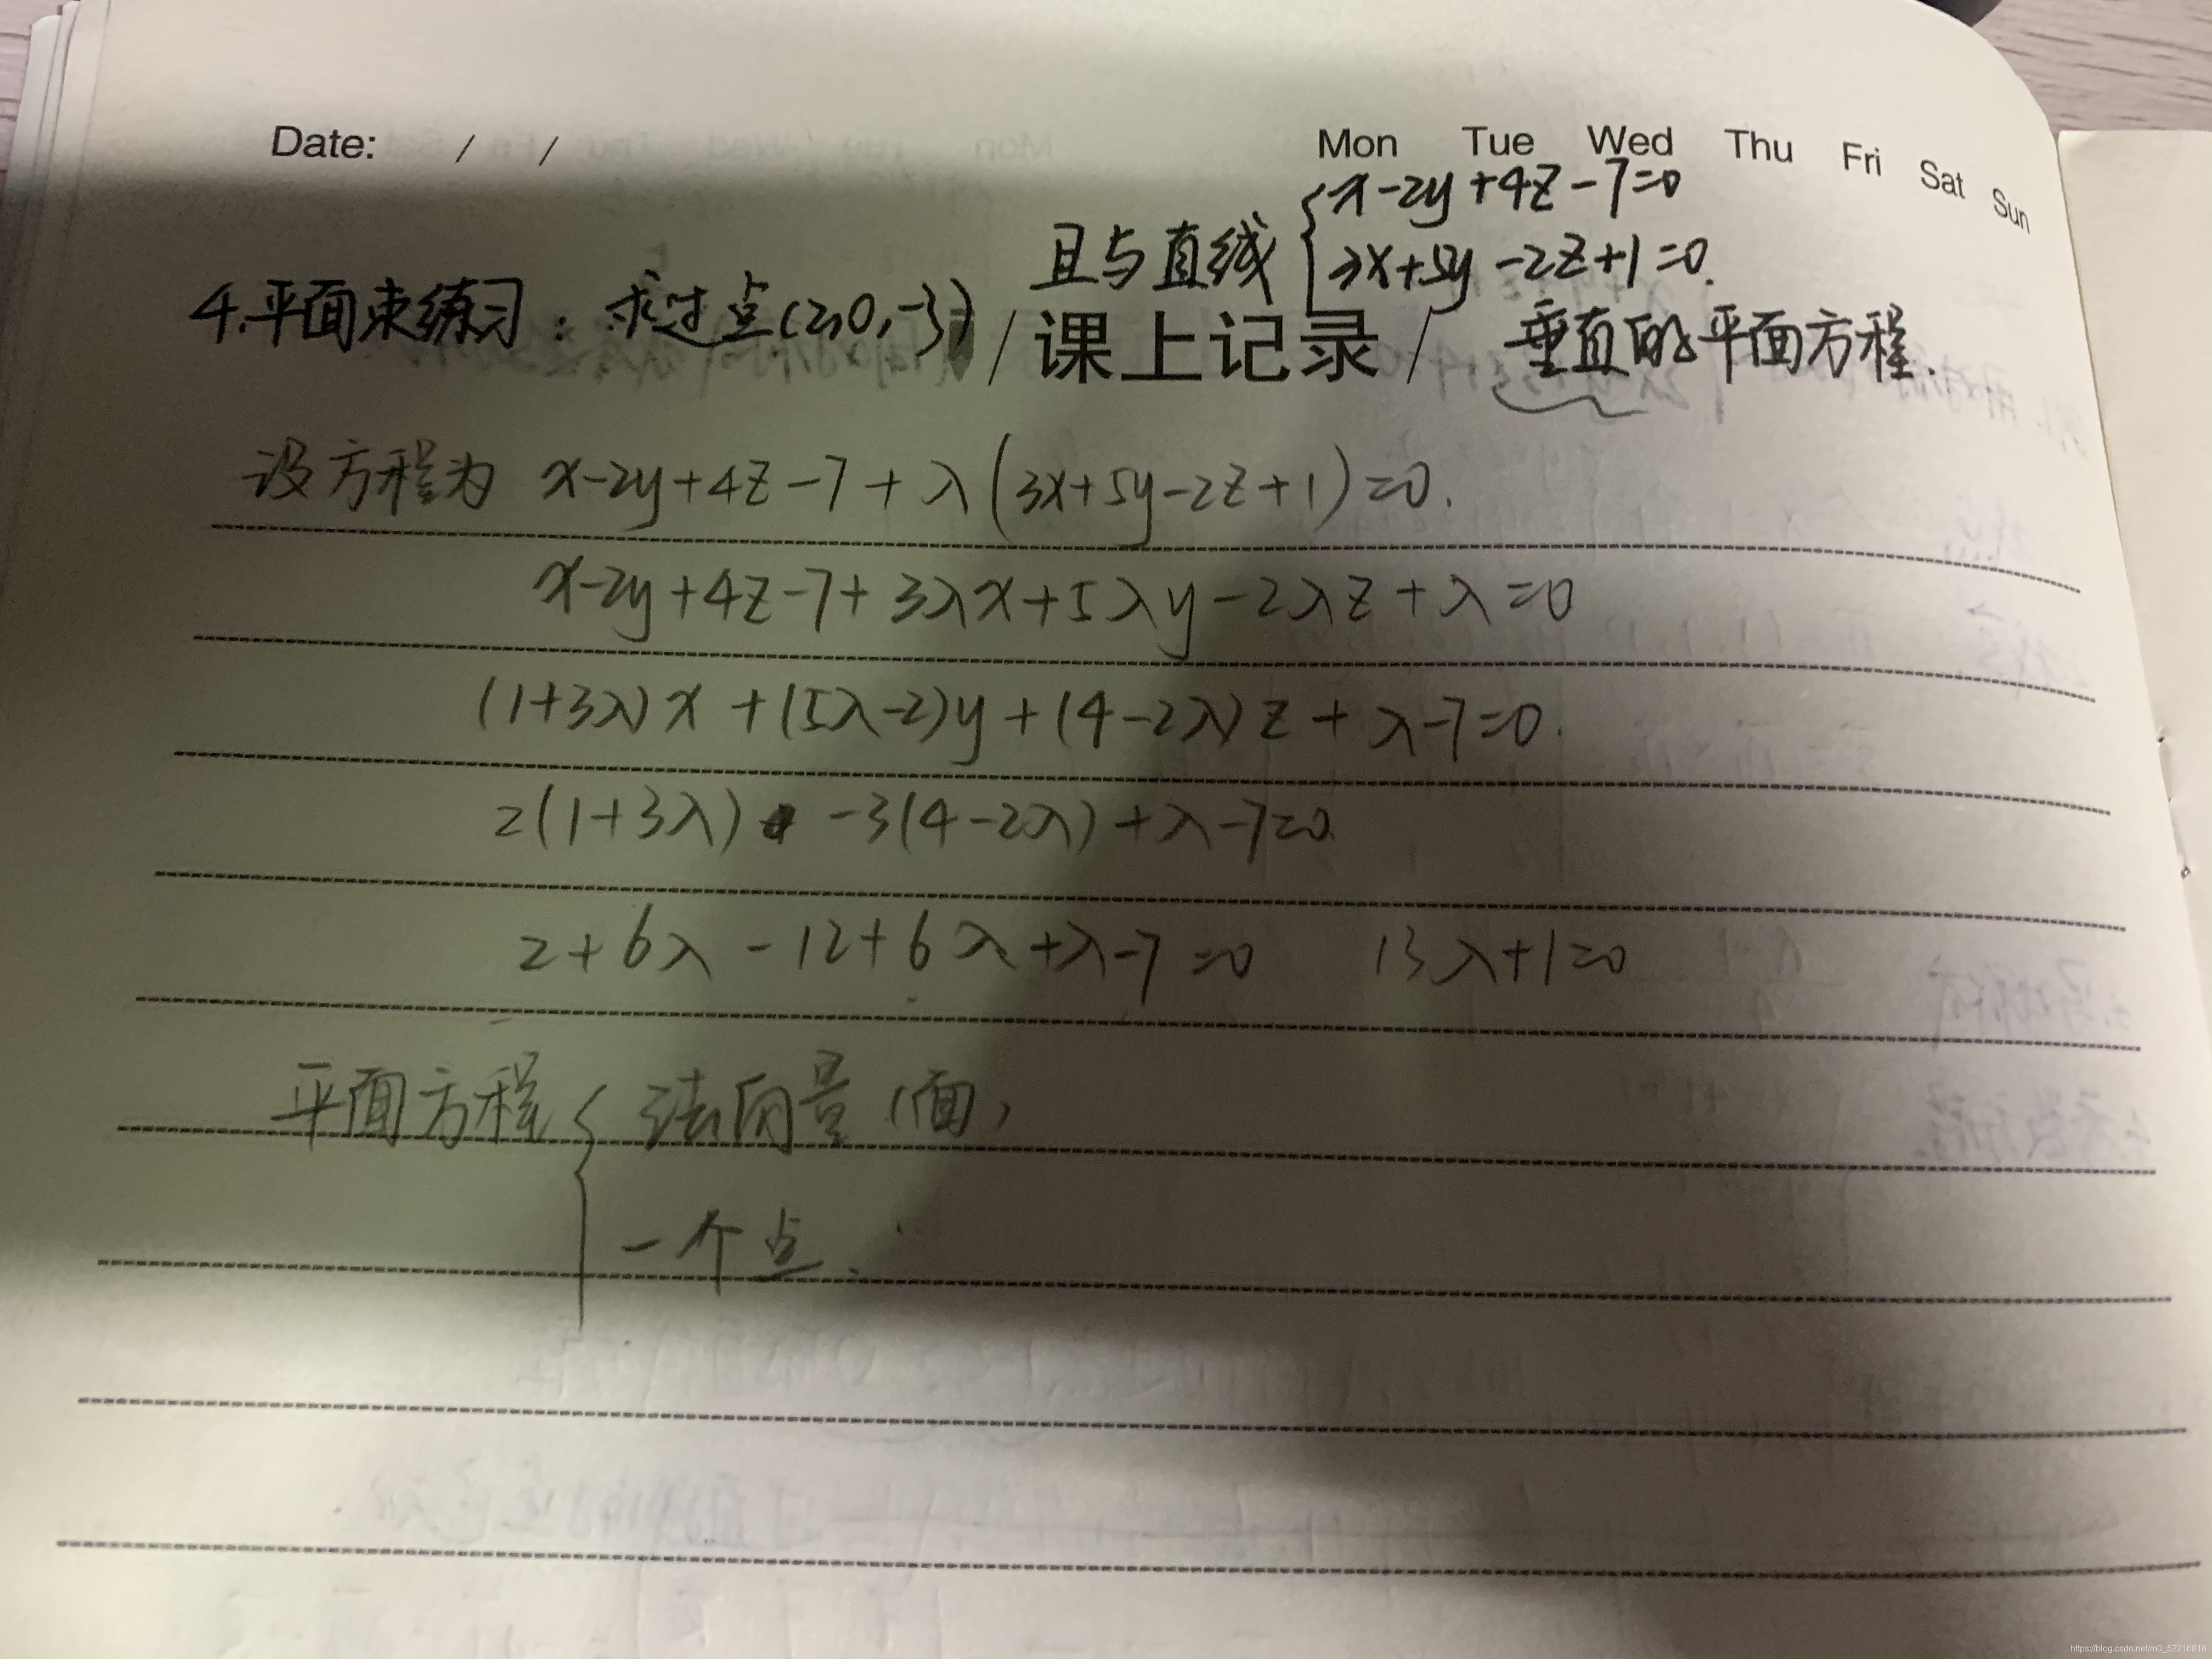 Date: / /
Mon Tue Wed Thu Fri Sat Sun
4.平面束练习：求过点(2,0,-3)
且与直线 { x-2y+4z-7=0
3x+5y-2z+1=0.
/ 课上记录 /
垂直的平面方程.
设方程为 x-2y+4z-7+λ(3x+5y-2z+1)=0.
x-2y+4z-7+3λx+5λy-2λz+λ=0
(1+3λ)x+(5λ-2)y+(4-2λ)z+λ-7=0.
2(1+3λ) -3(4-2λ)+λ-7=0
2+6λ-12+6λ+λ-7=0 13λ+1=0
平面方程 { 法向量(面)
一个点.
https://blog.csdn.net/m0_52216818